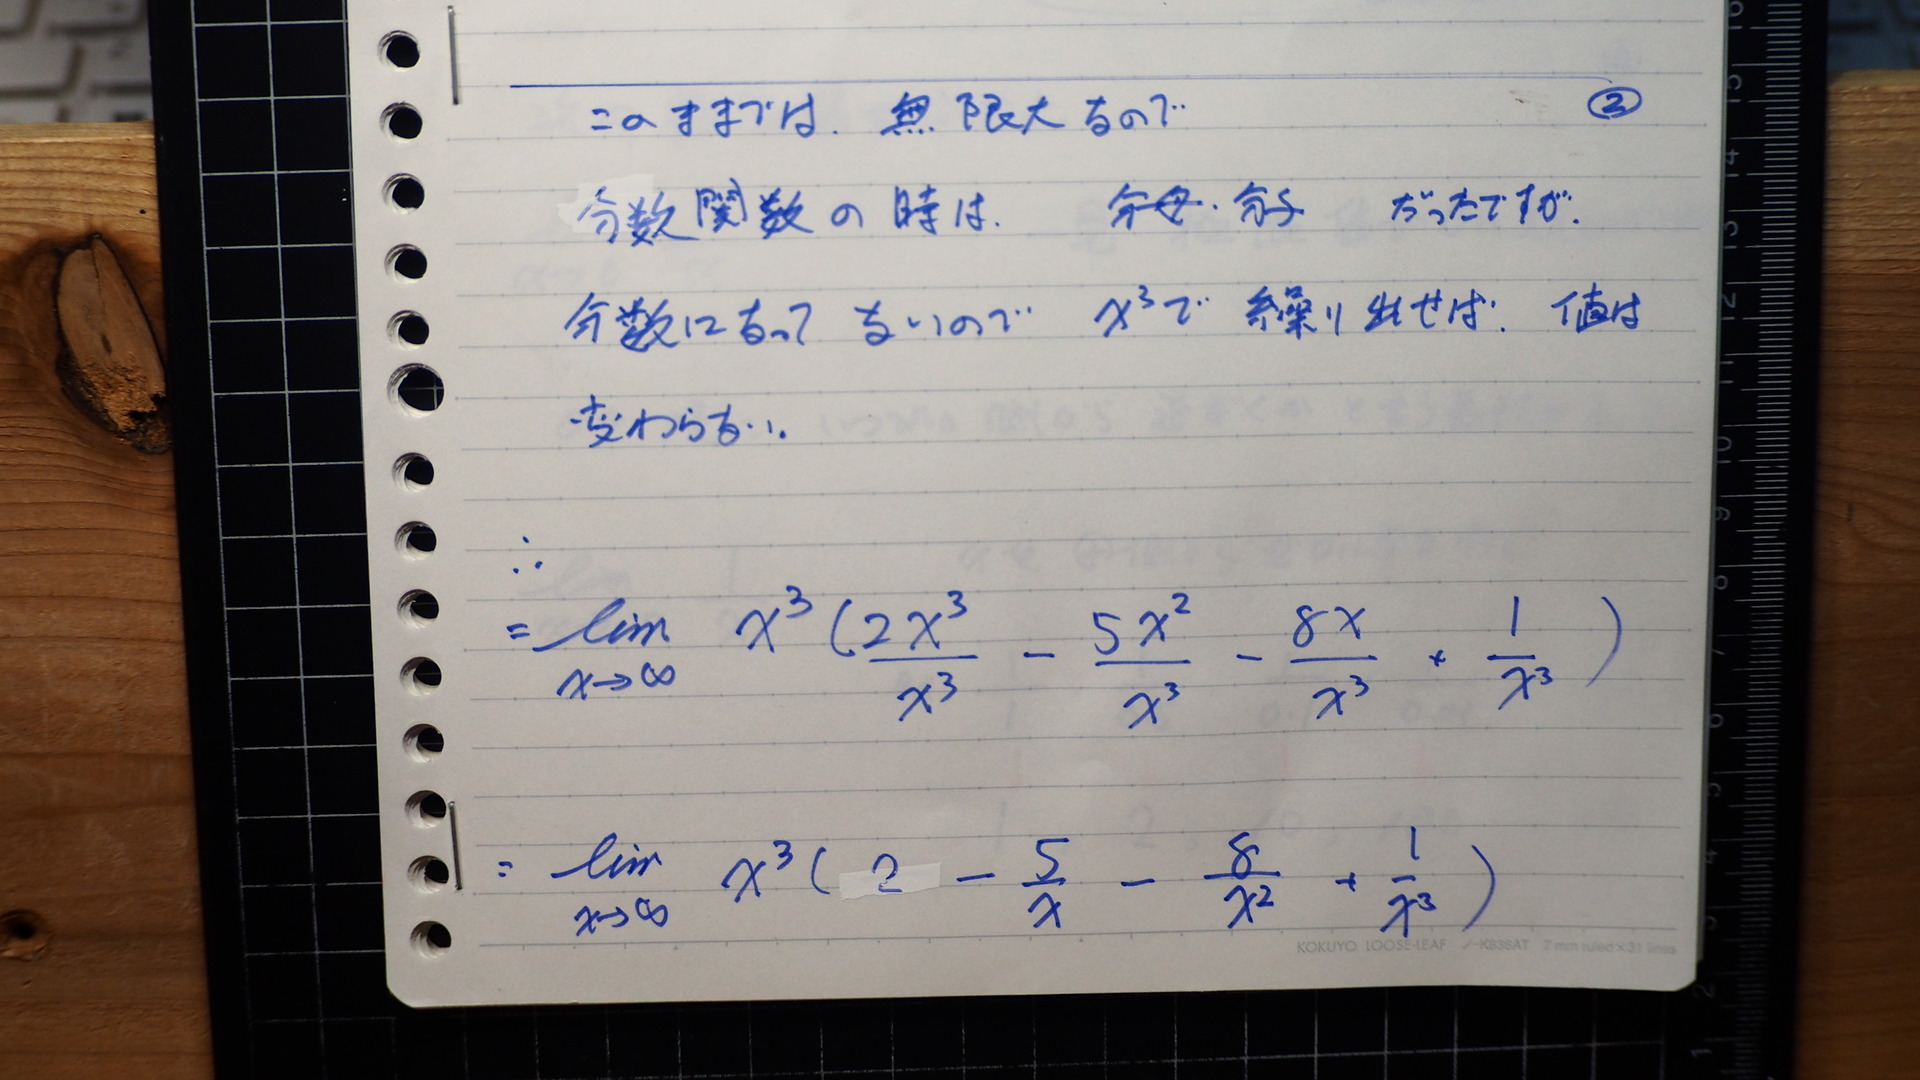 ②
このままでは、無限大なので
分数関数の時は、 分母・分子 だったですが、
分数になって ないので x³で 繰り出せば、 値は
変わらない。
∴
= lim x→∞ x³ ( 2x³/x³ - 5x²/x³ - 8x/x³ + 1/x³ )
= lim x→∞ x³ ( 2 - 5/x - 8/x² + 1/x³ )
KOKUYO LOOSE-LEAF ノ-K836AT 7 mm ruled×31 lines
16
15
14
13
12
11
10
9
8
7
6
5
4
3
2
1